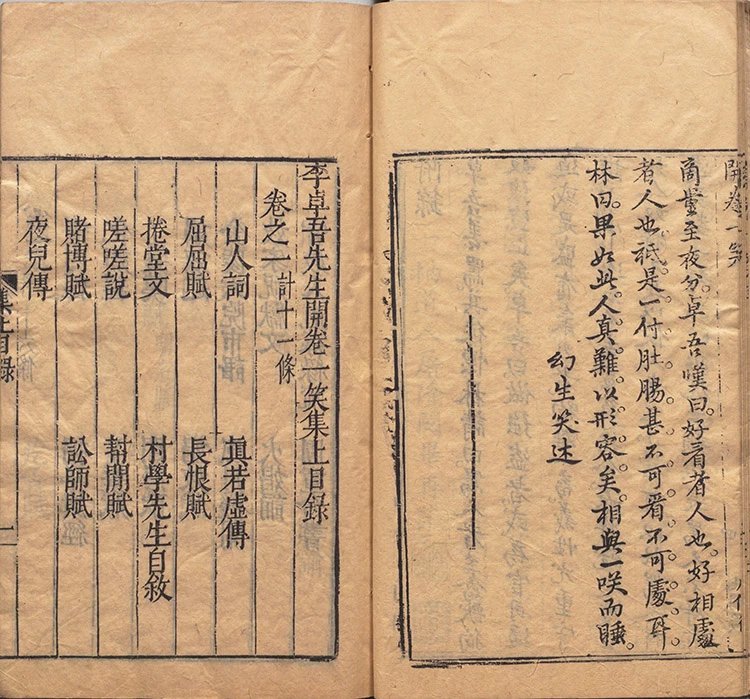 開卷一笑
商量至夜分。卓吾嘆曰。好看者人也。好相處
者人也。祇是一付肚腸甚不可看。不可處耳。
林曰。果如此。人真難以形容矣。相與一咲而睡。
幻生笑述
李卓吾先生開卷一笑集上目錄
卷之一 計十一條
山人詞 直若虛傳
屈屈賦 長恨賦
捲堂文 村學先生自敘
嗟嗟說 幇閒賦
賭博賦 訟師賦
夜兒傳
集上目錄 一